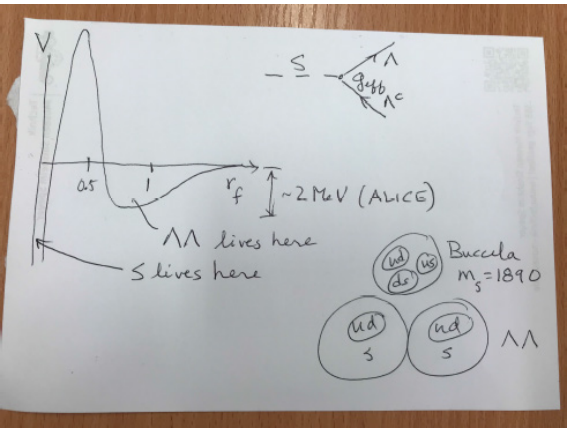 V
S
Λ
g_eff
Λ^c
0.5
1
r_f
~2 MeV (ALICE)
ΛΛ lives here
S lives here
ud
us
ds
Buccella
m_S=1890
ud
s
ud
s
ΛΛ